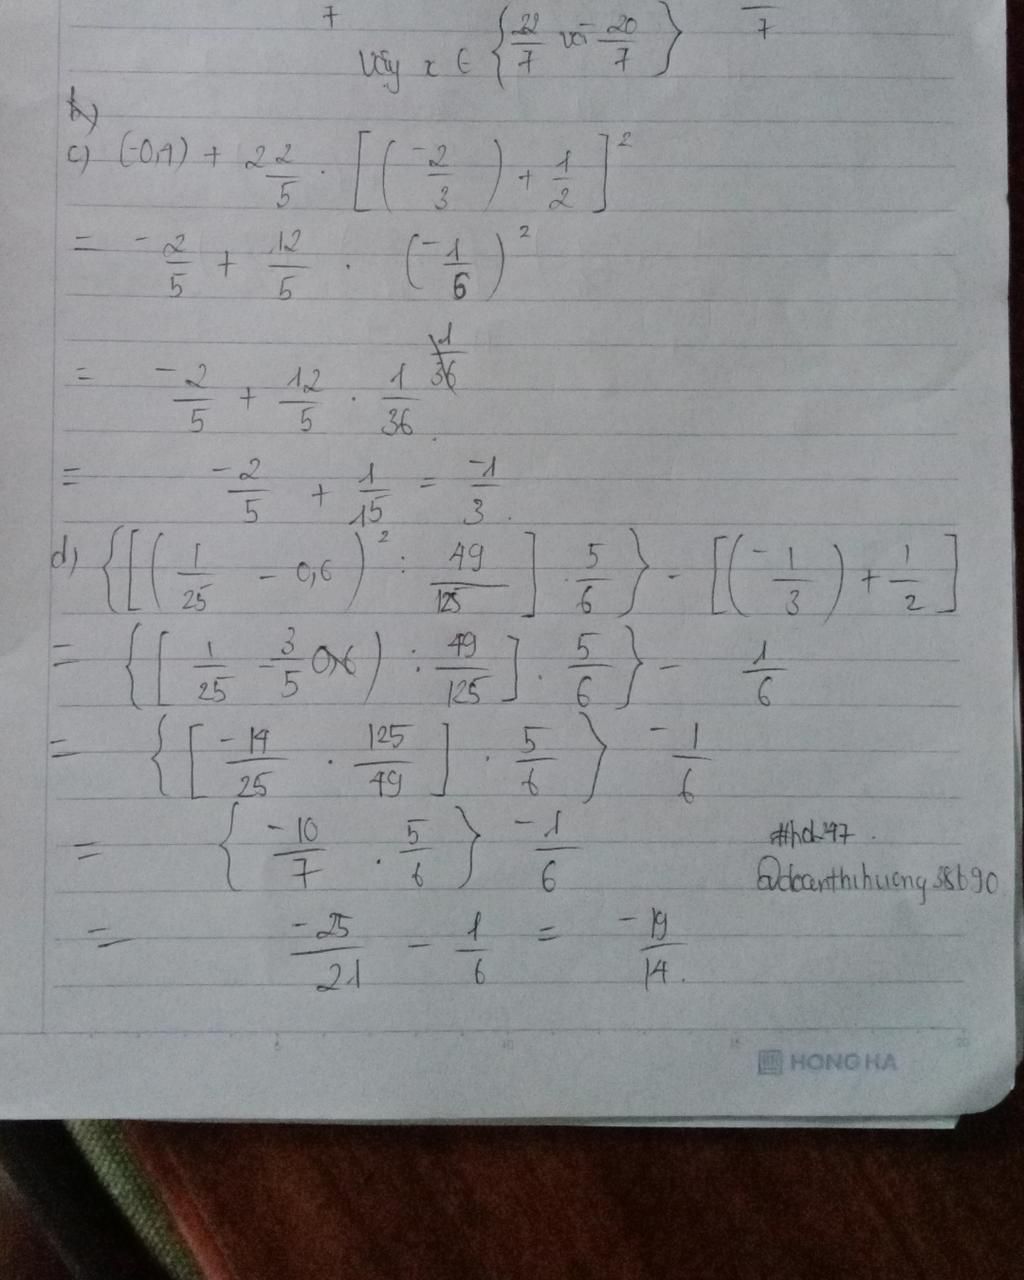 7
Vậy x ∈ {22/7 và -20/7} /7
b)
c) (-0,4) + 2 2/5 . [(-2/3) + 1/2]²
= -2/5 + 12/5 . (-1/6)²
= -2/5 + 12/5 . 1/36 1/36
= -2/5 + 1/15 = -1/3.
d) {[(1/25 - 0,6)² : 49/125] . 5/6} - [(-1/3) + 1/2]
= {[1/25 - 3/5 0,6) : 49/125] . 5/6} - 1/6
= {[-14/25 . 125/49] . 5/6} - 1/6
= {-10/7 . 5/6} - 1/6
= -25/21 - 1/6 = -19/14.
HONG HA